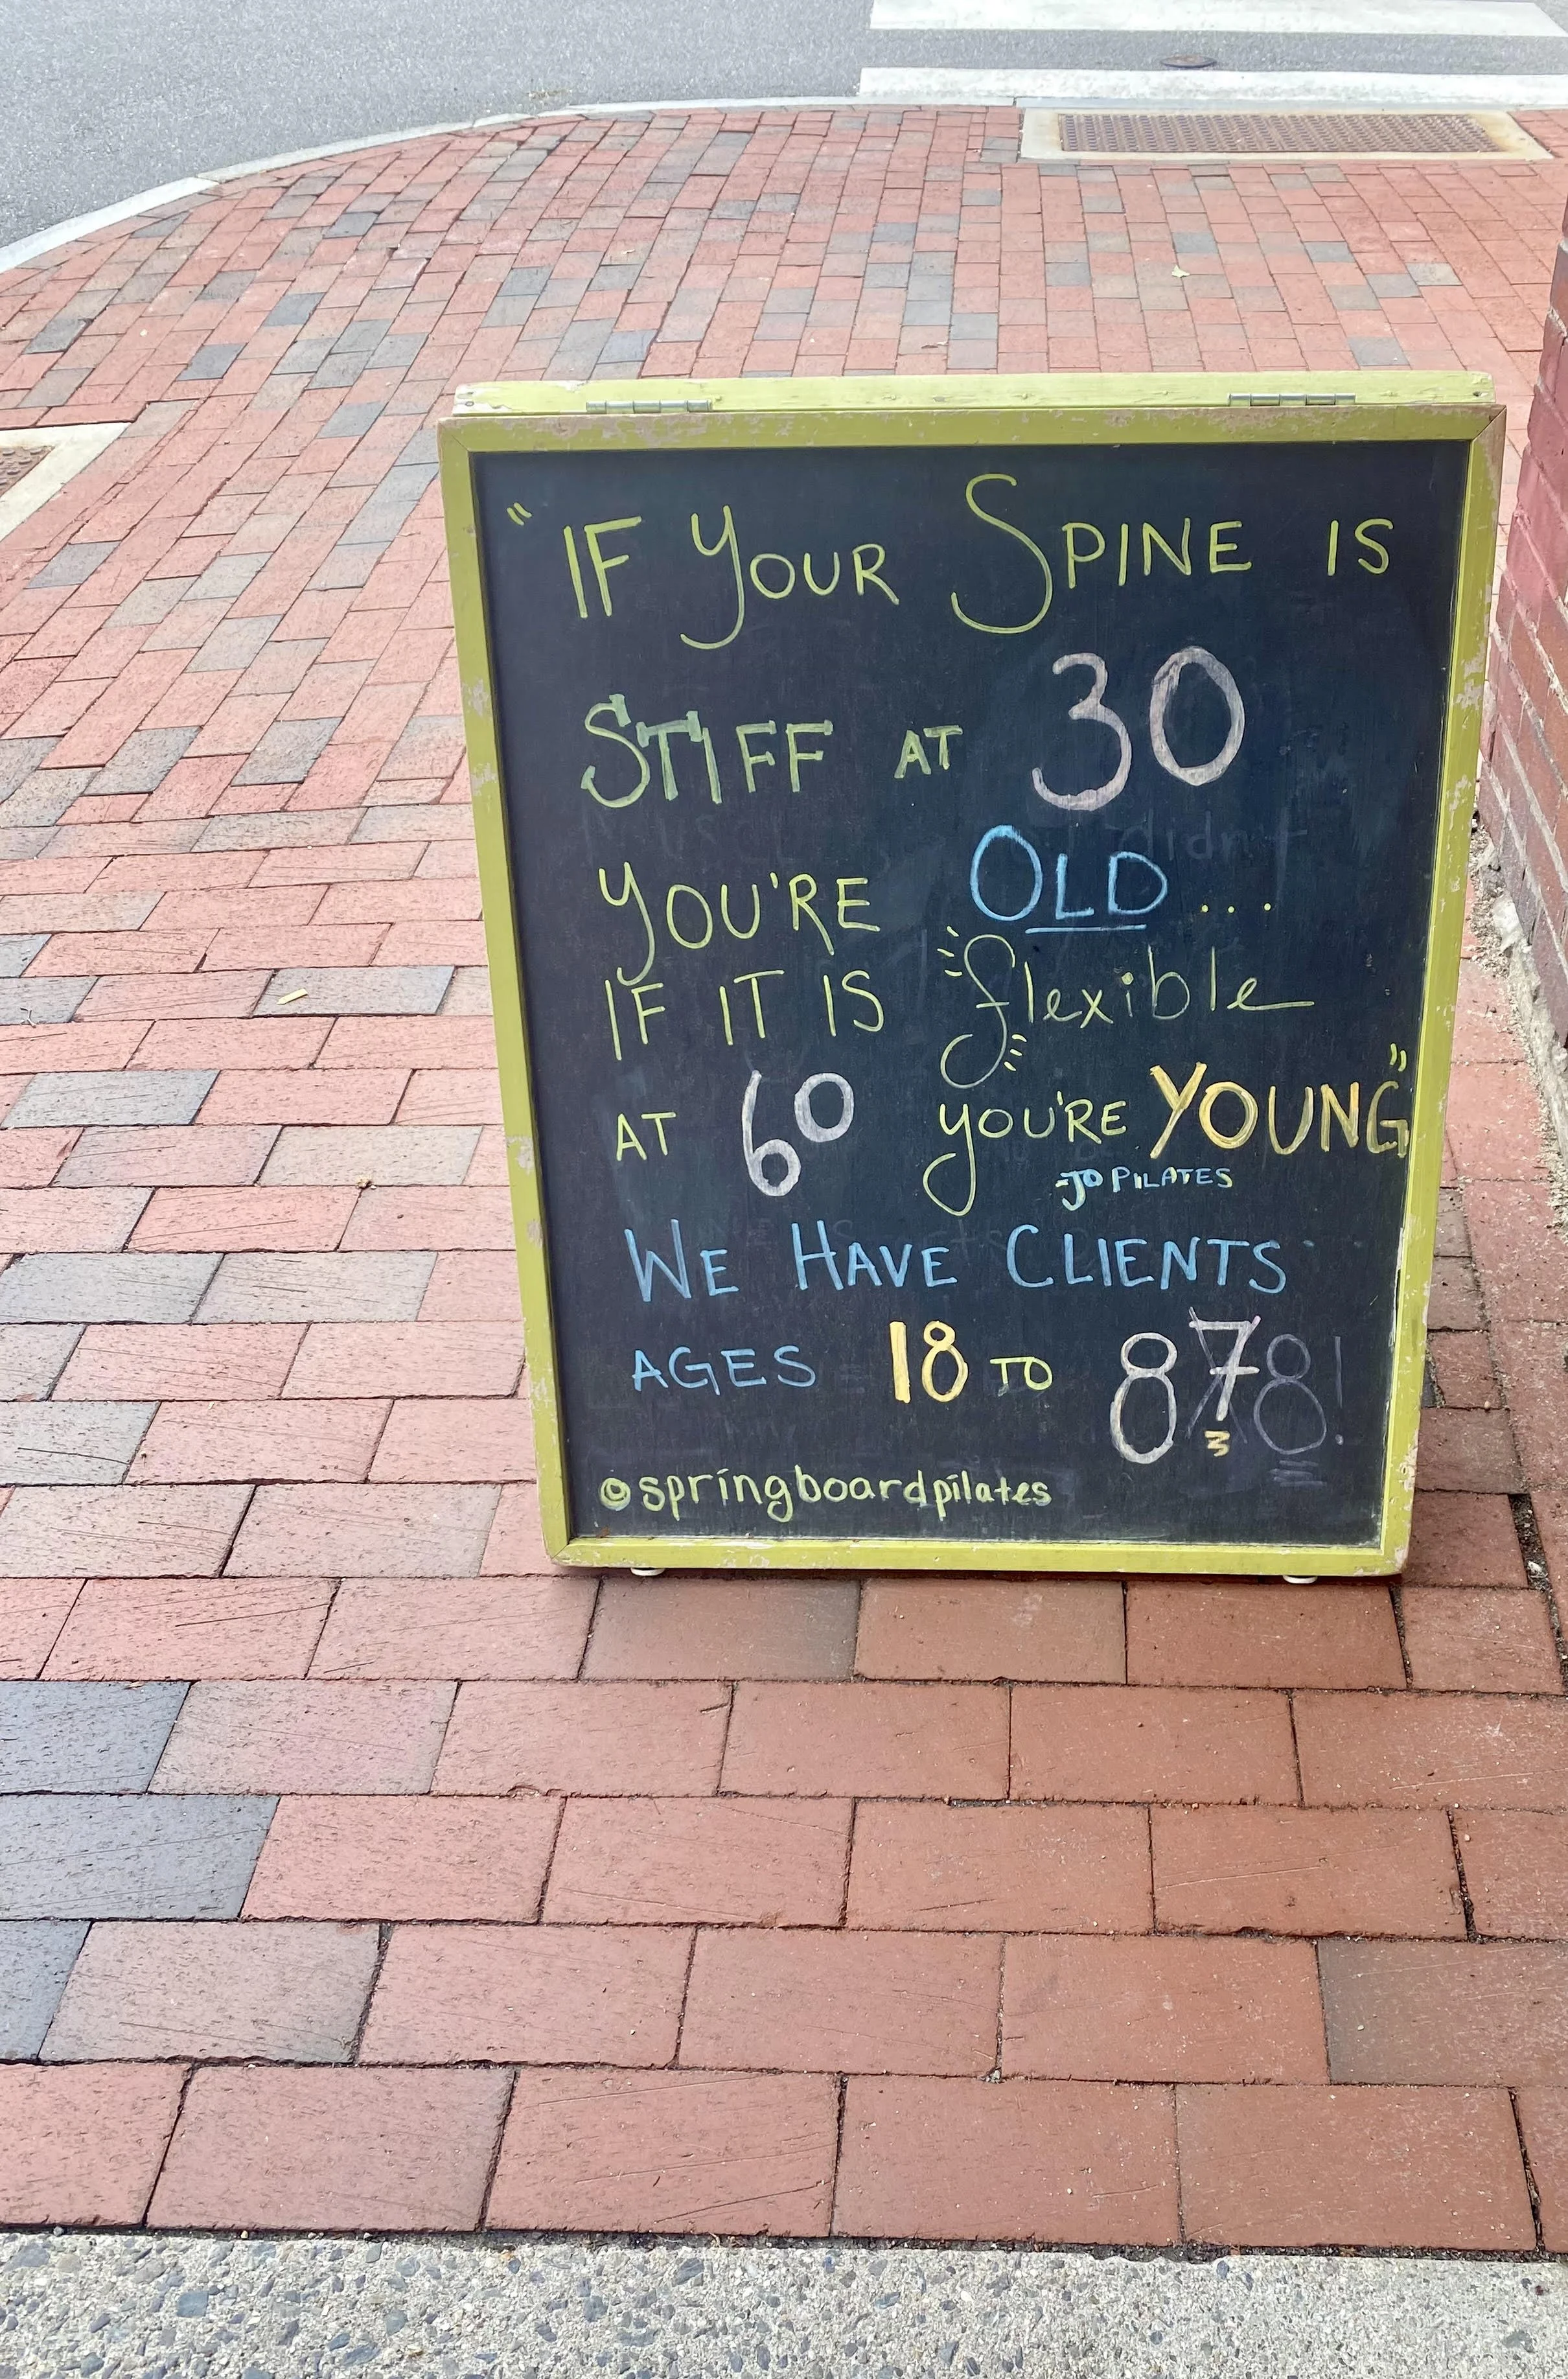 "IF YOUR SPINE IS
STIFF AT 30
YOU'RE OLD...
IF IT IS flexible
AT 60 YOU'RE YOUNG"
-JO PILATES
WE HAVE CLIENTS
AGES 18 TO 878!
3
@springboardpilates